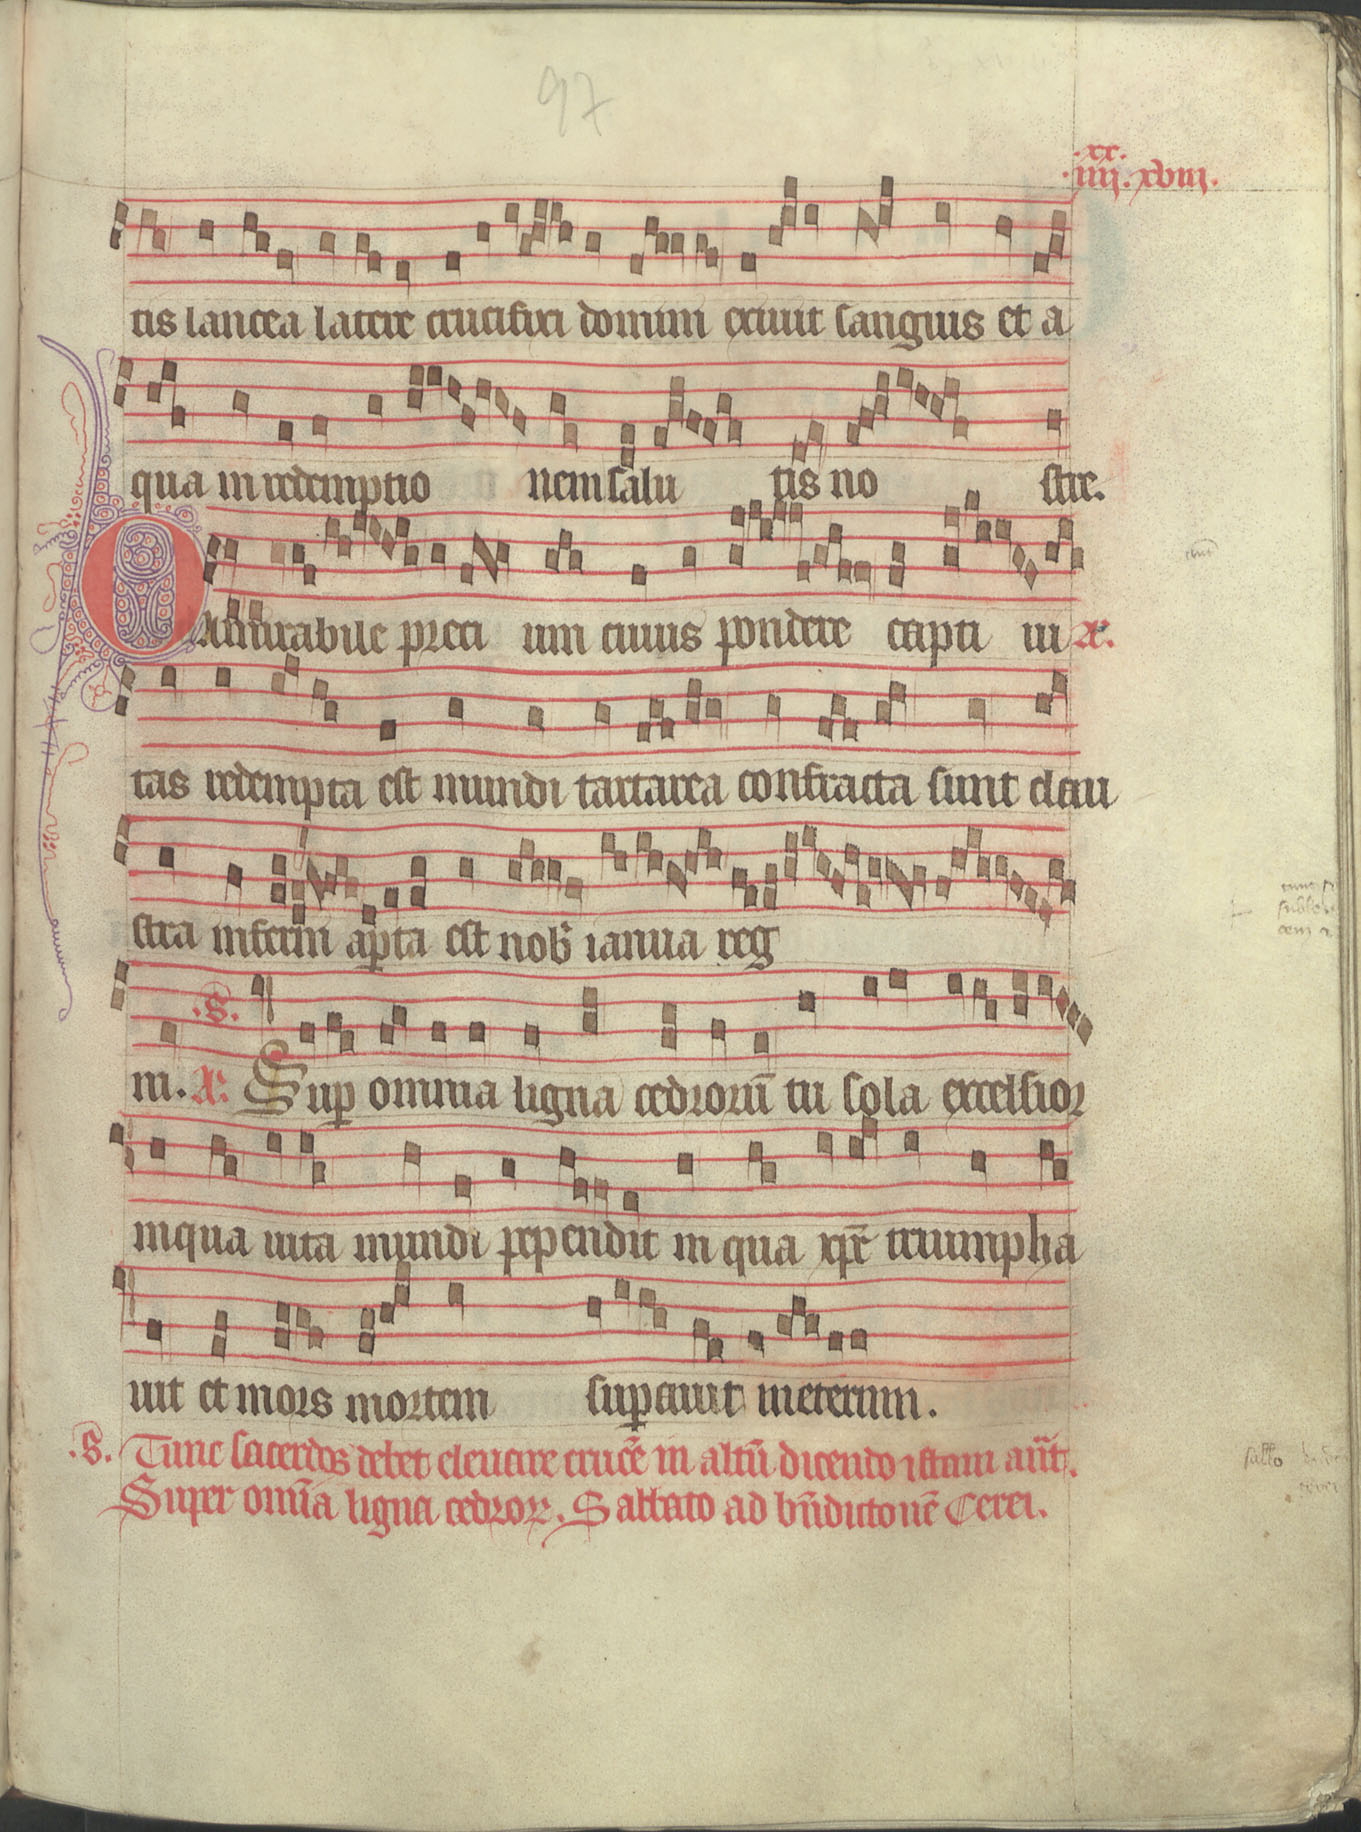 97
.xx.
.iiij. xviij.
tis lancea latere crucifixi domini exiuit sanguis et a
qua in redemptio nem salu tis no stre.
O Admirabile preci um cuius pondere capti ui
tas redempta est mundi tartarea confracta sunt clau
stra inferni apta est nob ianua reg
.S.
ni. Sup omnia ligna cedrorū tu sola excelsior
inqua uita mundi pependit in qua xpē triumpha
uit et mors mortem supauit ineternum.
.S. Tunc sacerdos debet eleuare crucē in altū dicendo istam anā.
Super omīa ligna cedroꝝ. Sabbato ad bndictionē Cerei.